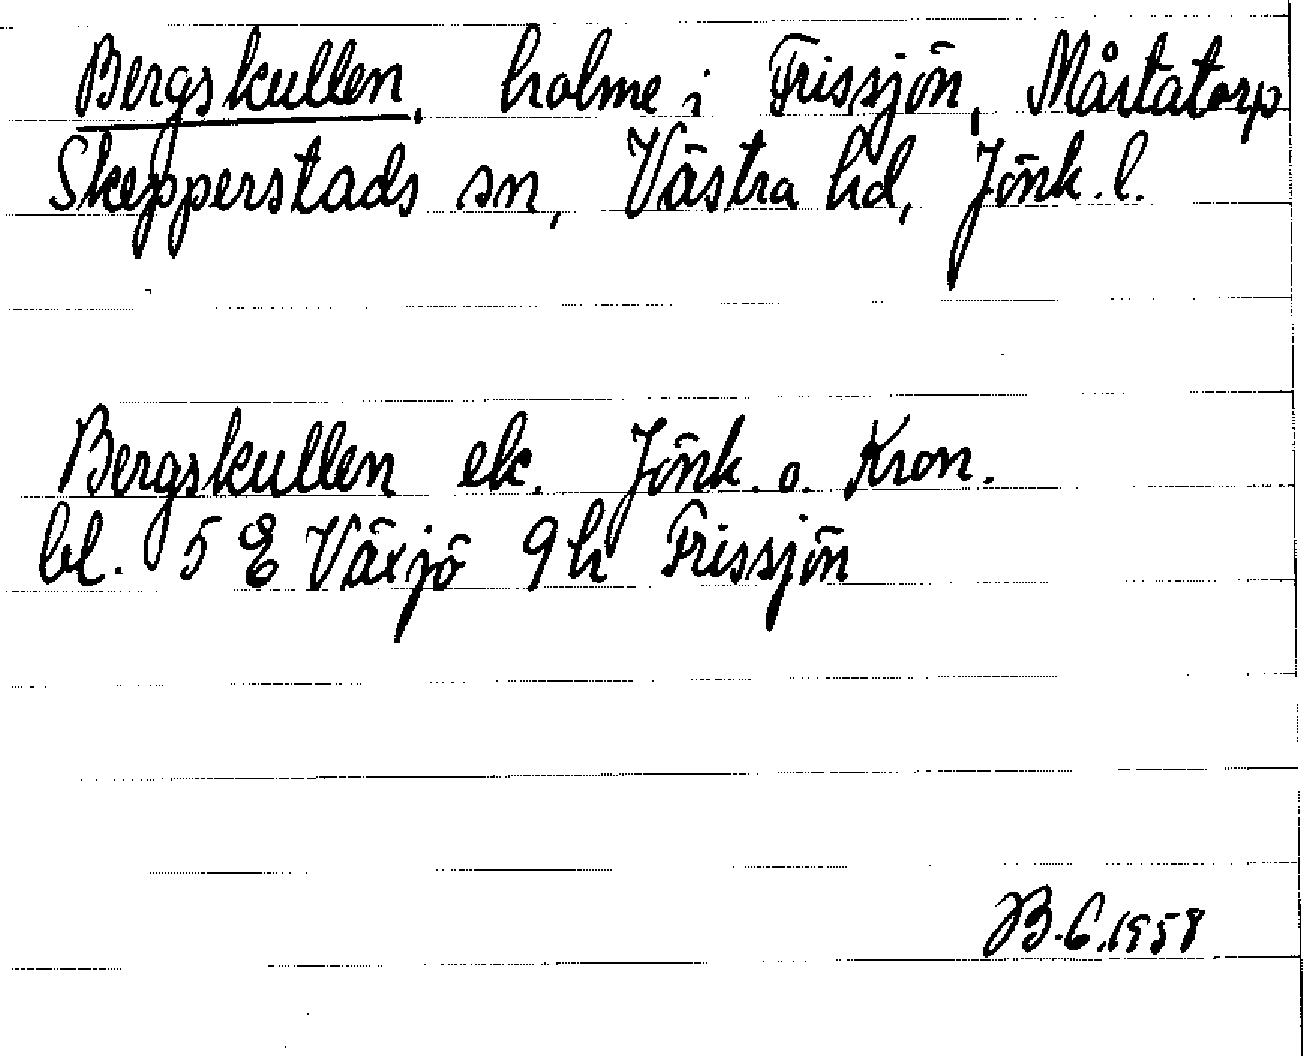 Bergskullen, holme i Frissjön, Mårtatorp
Skepperstads sn, Västra hd, Jönk. l.
Bergskullen ek. Jönk. o. Kron.
bl. 5 E Växjö 9h Frissjön
B.C. 1958